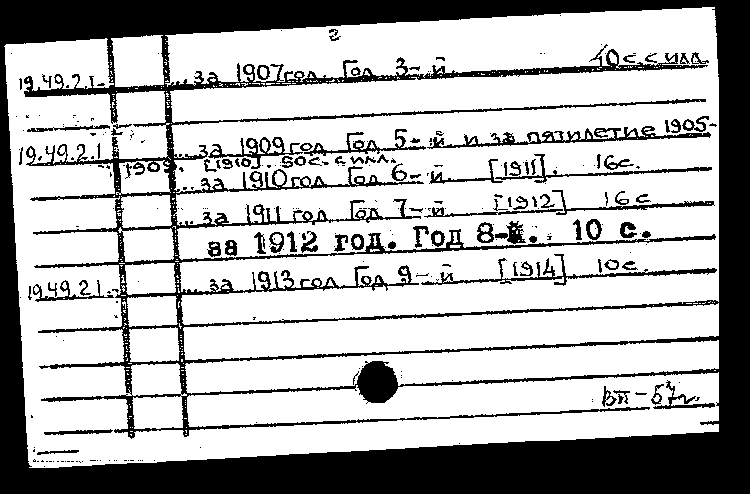 2
19.49.2.1- ...за 1907 год. Год 3-й. 40 с. с илл.
19.49.2.1 ...за 1909 год Год 5-й и за пятилетие 1905-
1909. [1910]. 50 с. с илл.
...за 1910 год Год 6-й. [1911]. 16 с.
...за 1911 год Год 7-й. [1912] 16 с
за 1912 год. Год 8-й. 10 с.
19.49.21.- ...за 1913 год Год 9-й [1914] 10 с.
вп-57г.